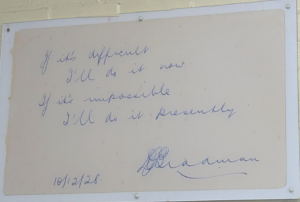 If it's difficult
I'll do it now
If it's impossible
I'll do it presently
DBradman
10/12/28